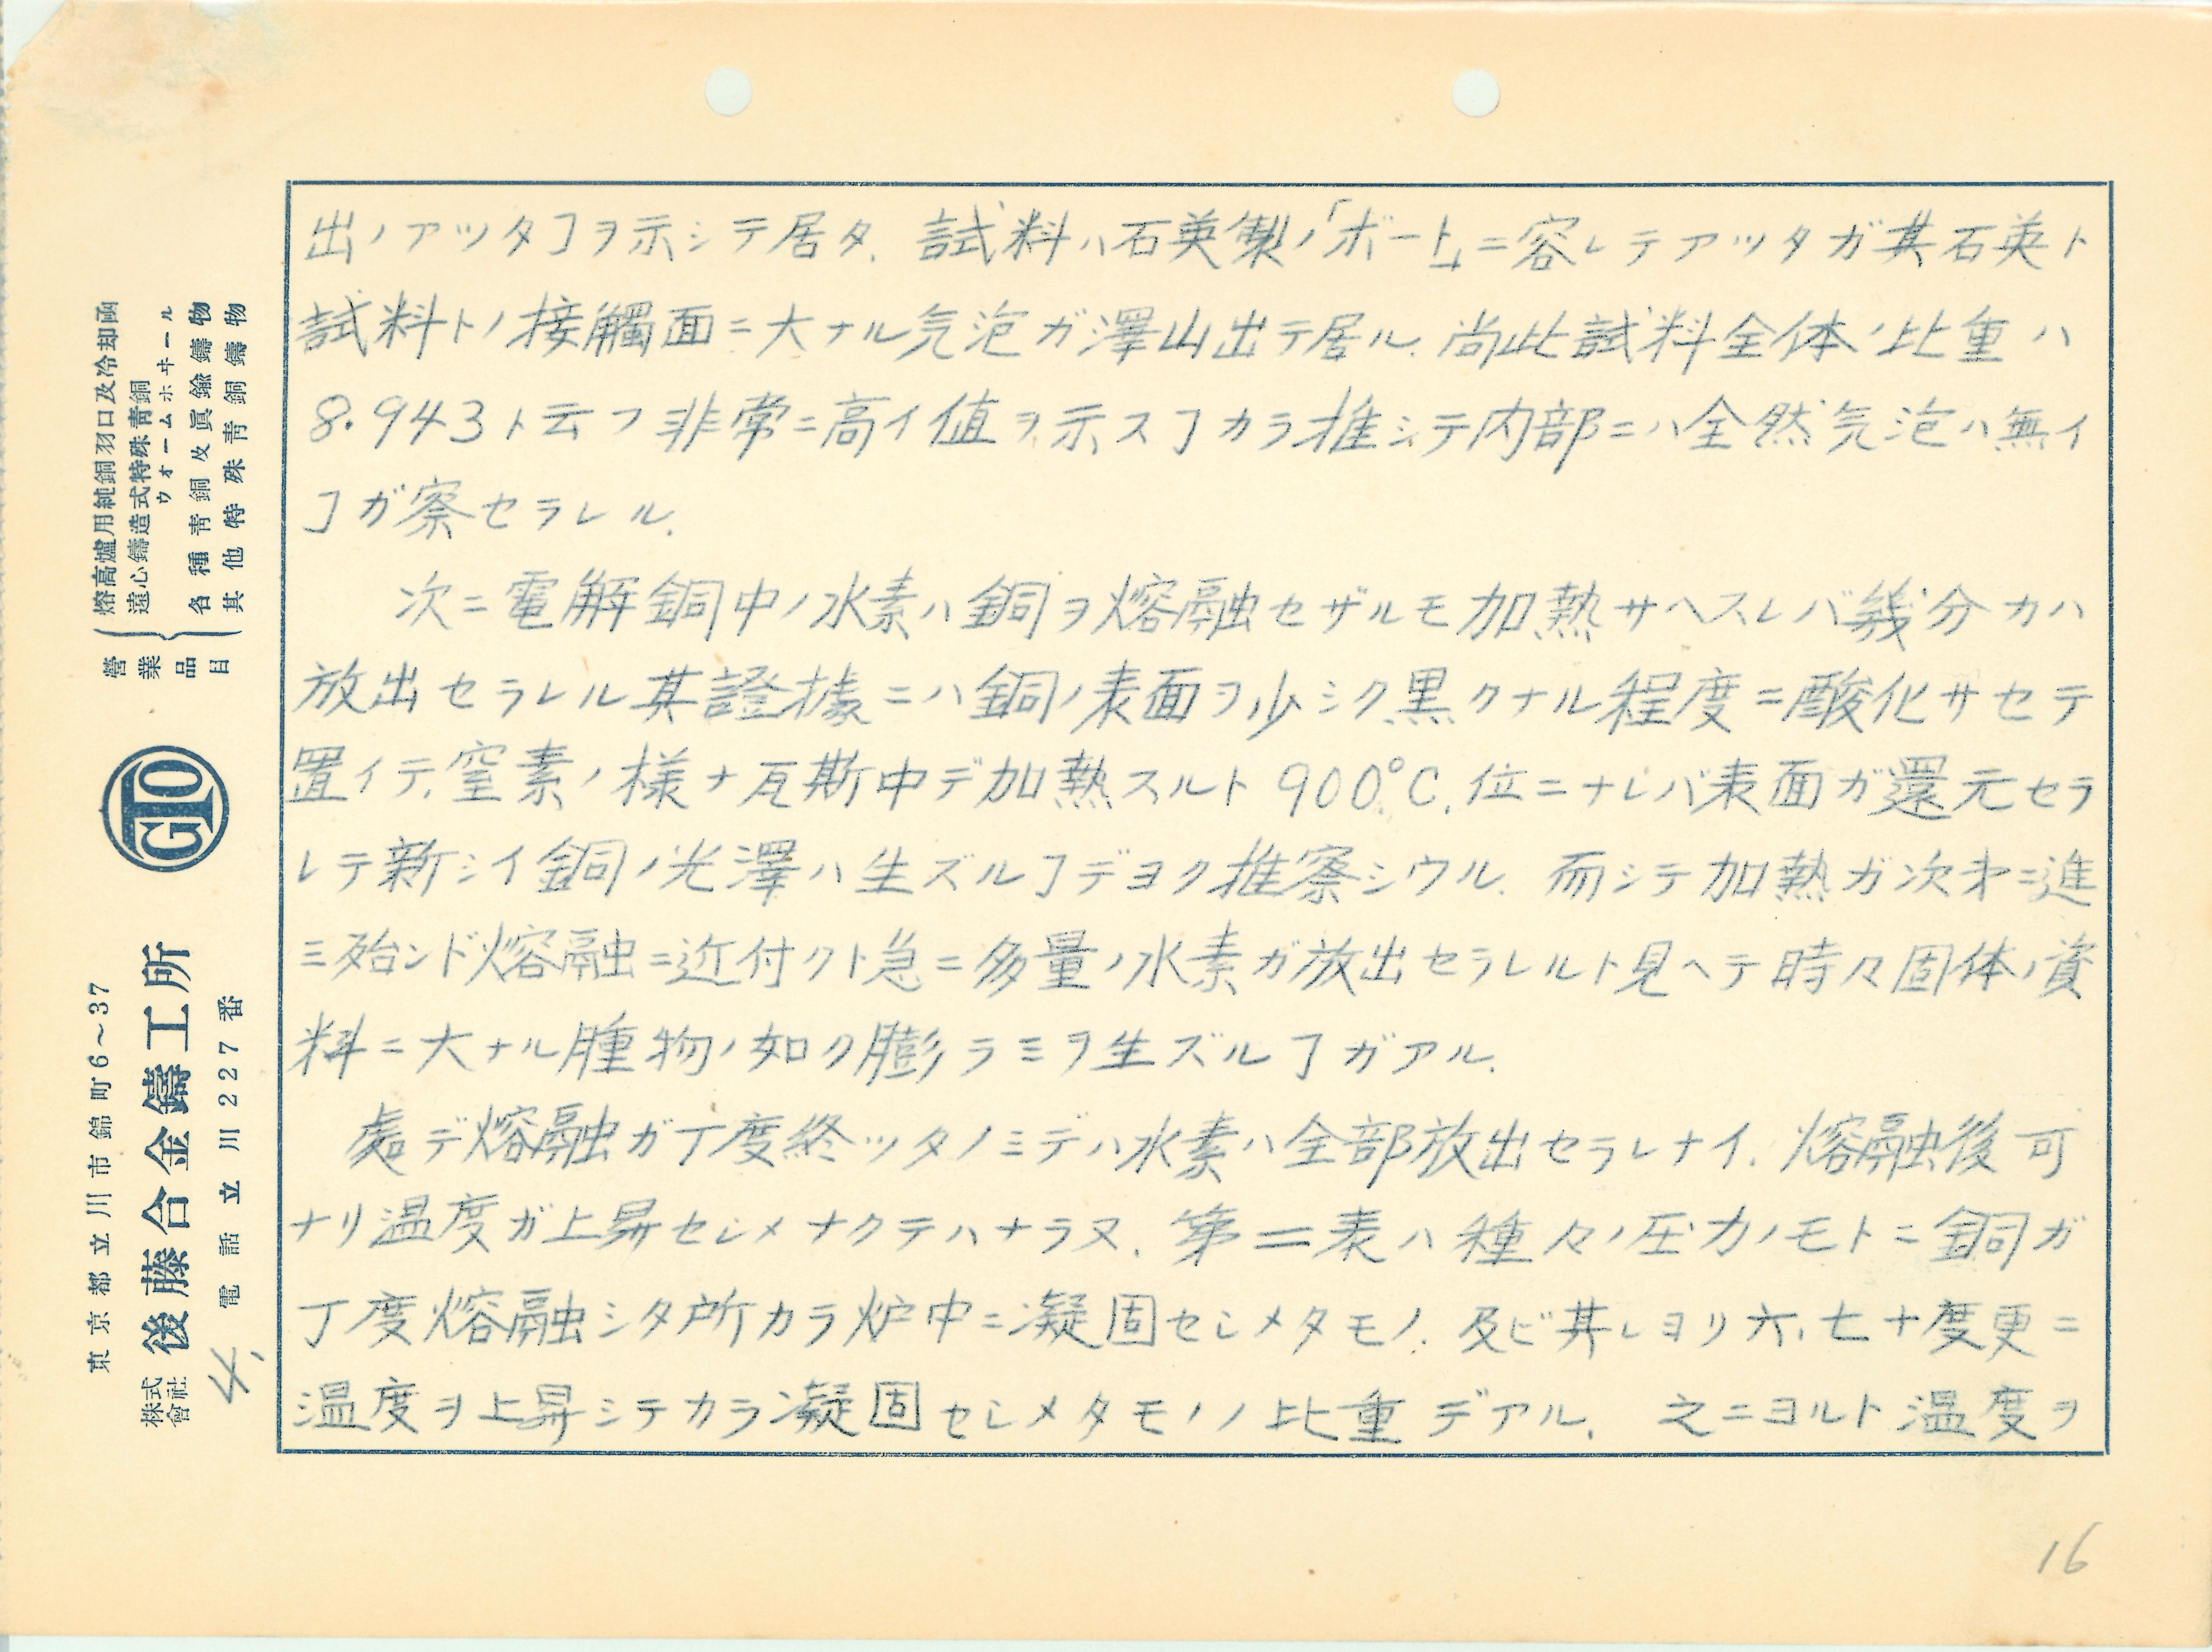 出ノアツタヿヲ示シテ居タ. 試料ハ石英製ノ「ボート」ニ容レテアツタガ其石英ト
試料トノ接觸面ニ大ナル気泡ガ澤山出テ居ル. 尚此試料全体ノ比重ハ
8.943ト云フ非常ニ高イ値ヲ示スヿカラ推シテ内部ニハ全然気泡ハ無イ
ヿガ察セラレル.
次ニ電解銅中ノ水素ハ銅ヲ熔融セザルモ加熱サヘスレバ幾分カハ
放出セラレル其證據ニハ銅ノ表面ヲ少シク黒クナル程度ニ酸化サセテ
置イテ, 窒素ノ様ナ瓦斯中デ加熱スルト 900°C. 位ニナレバ表面ガ還元セラ
レテ新シイ銅ノ光澤ハ生ズルヿデヨク推察シウル. 而シテ加熱ガ次第ニ進
ミ殆ンド熔融ニ近付クト急ニ多量ノ水素ガ放出セラレルト見ヘテ時々固体ノ資
料ニ大ナル腫物ノ如ク膨ラミヲ生ズルヿガアル.
處デ熔融ガ丁度終ツタノミデハ水素ハ全部放出セラレナイ. 熔融後可
ナリ温度ガ上昇セシメナクテハナラヌ. 第二表ハ種々ノ圧力ノモトニ銅ガ
丁度熔融シタ所カラ炉中ニ凝固セシメタモノ. 及ビ其レヨリ六, 七十度更ニ
温度ヲ上昇シテカラ凝固セシメタモノノ比重デアル. 之ニヨルト温度ヲ
16
營業品目
熔高爐用純銅羽口及冷却函
遠心鑄造式特殊青銅ウオームホヰール
各種青銅及眞鍮鑄物
其他特殊青銅鑄物
GTO
東京都立川市錦町6~37
株式會社 後藤合金鑄工所
電話立川227番
4.